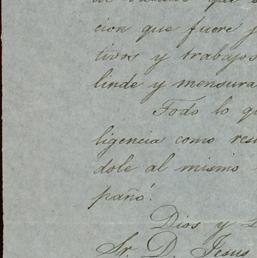 cion que fuere
tivos y trabajos
linde y mensura
Todo lo
ligencia como
dole al mismo
pañó.
Dios y
Sr. D. Jesus